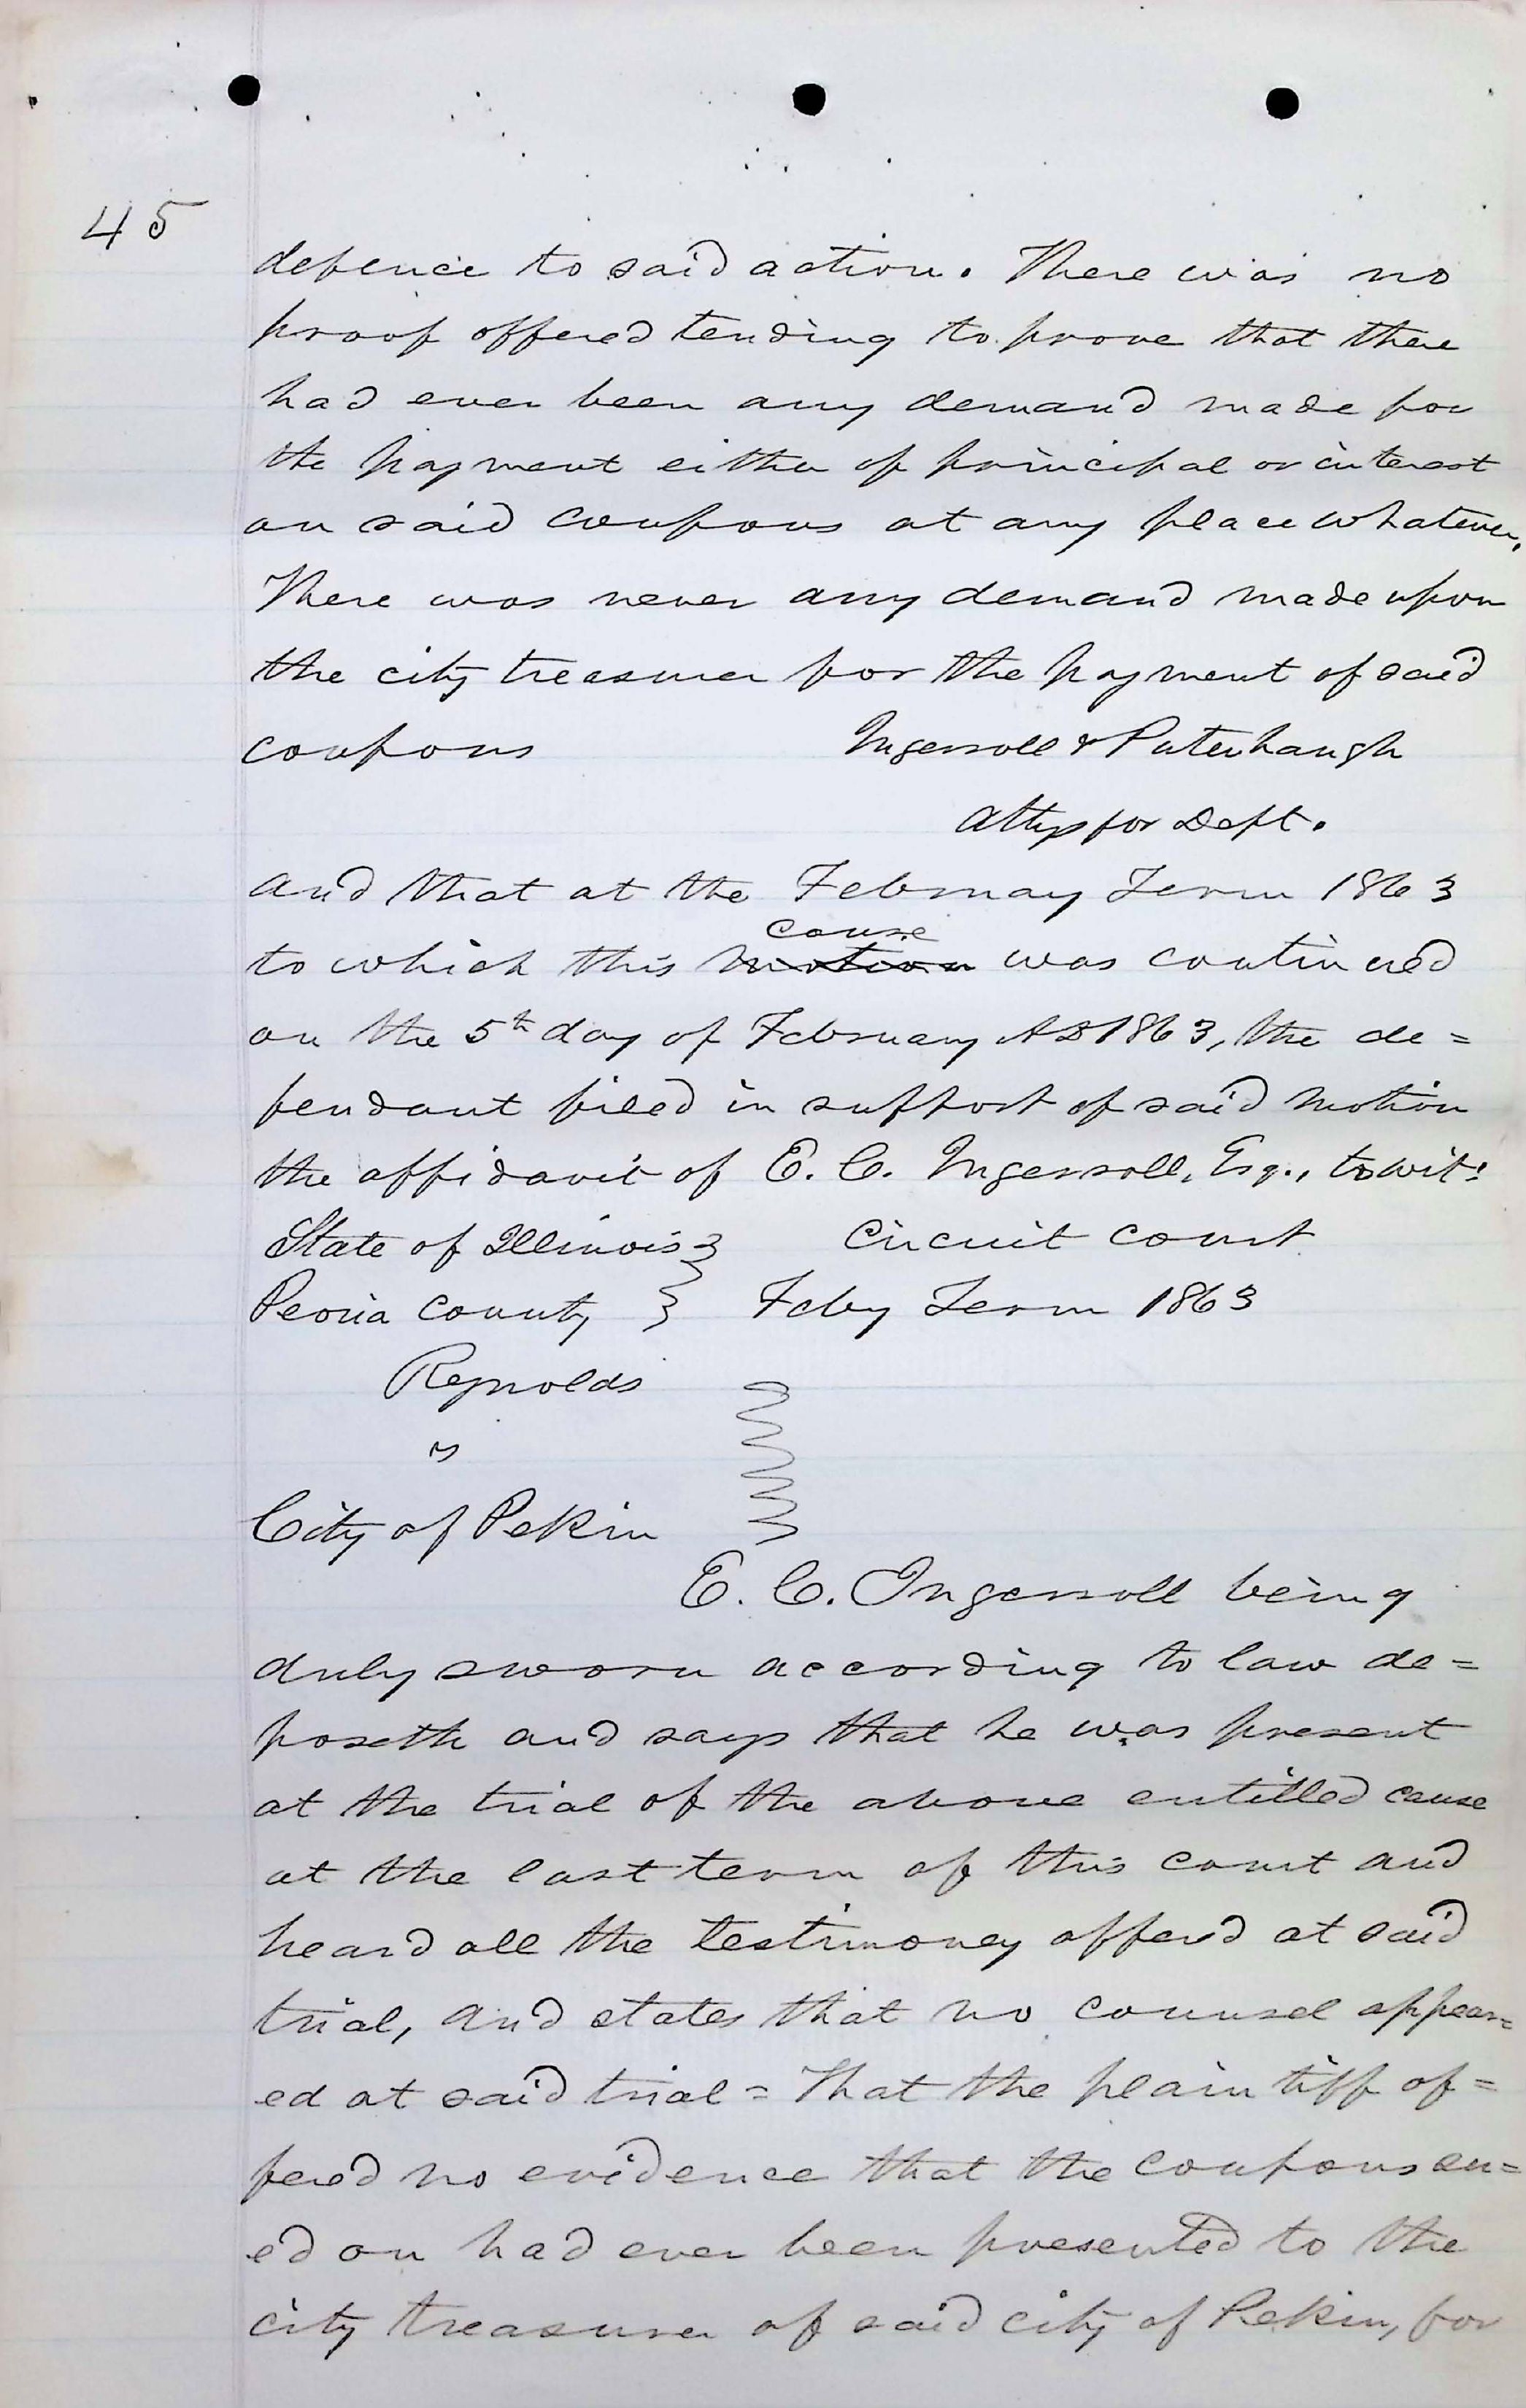 45
defence to said action. There was no
proof offered tending to prove that there
had ever been any demand made for
the payment either of principal or interest
on said coupons at any place whatever.
There was never any demand made upon
the city treasurer for the payment of said
coupons Ingersoll & Puterbaugh
Attys for Deft.
And that at the February Term 1863
cause
to which this motion was continued
on the 5th day of February AD 1863, the de=
fendant filed in support of said motion
the affidavit of E. C. Ingersoll, Esq., to wit:
State of Illinois } Circuit court
Peoria County } Feby Term 1863
Reynolds
vs
City of Pekin
E. C. Ingersoll being
duly sworn according to law de=
poseth and says that he was present
at the trial of the above entitled cause
at the last term of this court and
heard all the testimoney offerd at said
trial, and states that no counsel appear=
ed at said trial = That the plaintiff of=
fered no evidence that the coupons su=
ed on had ever been presented to the
city treasurer of said city of Pekin, for